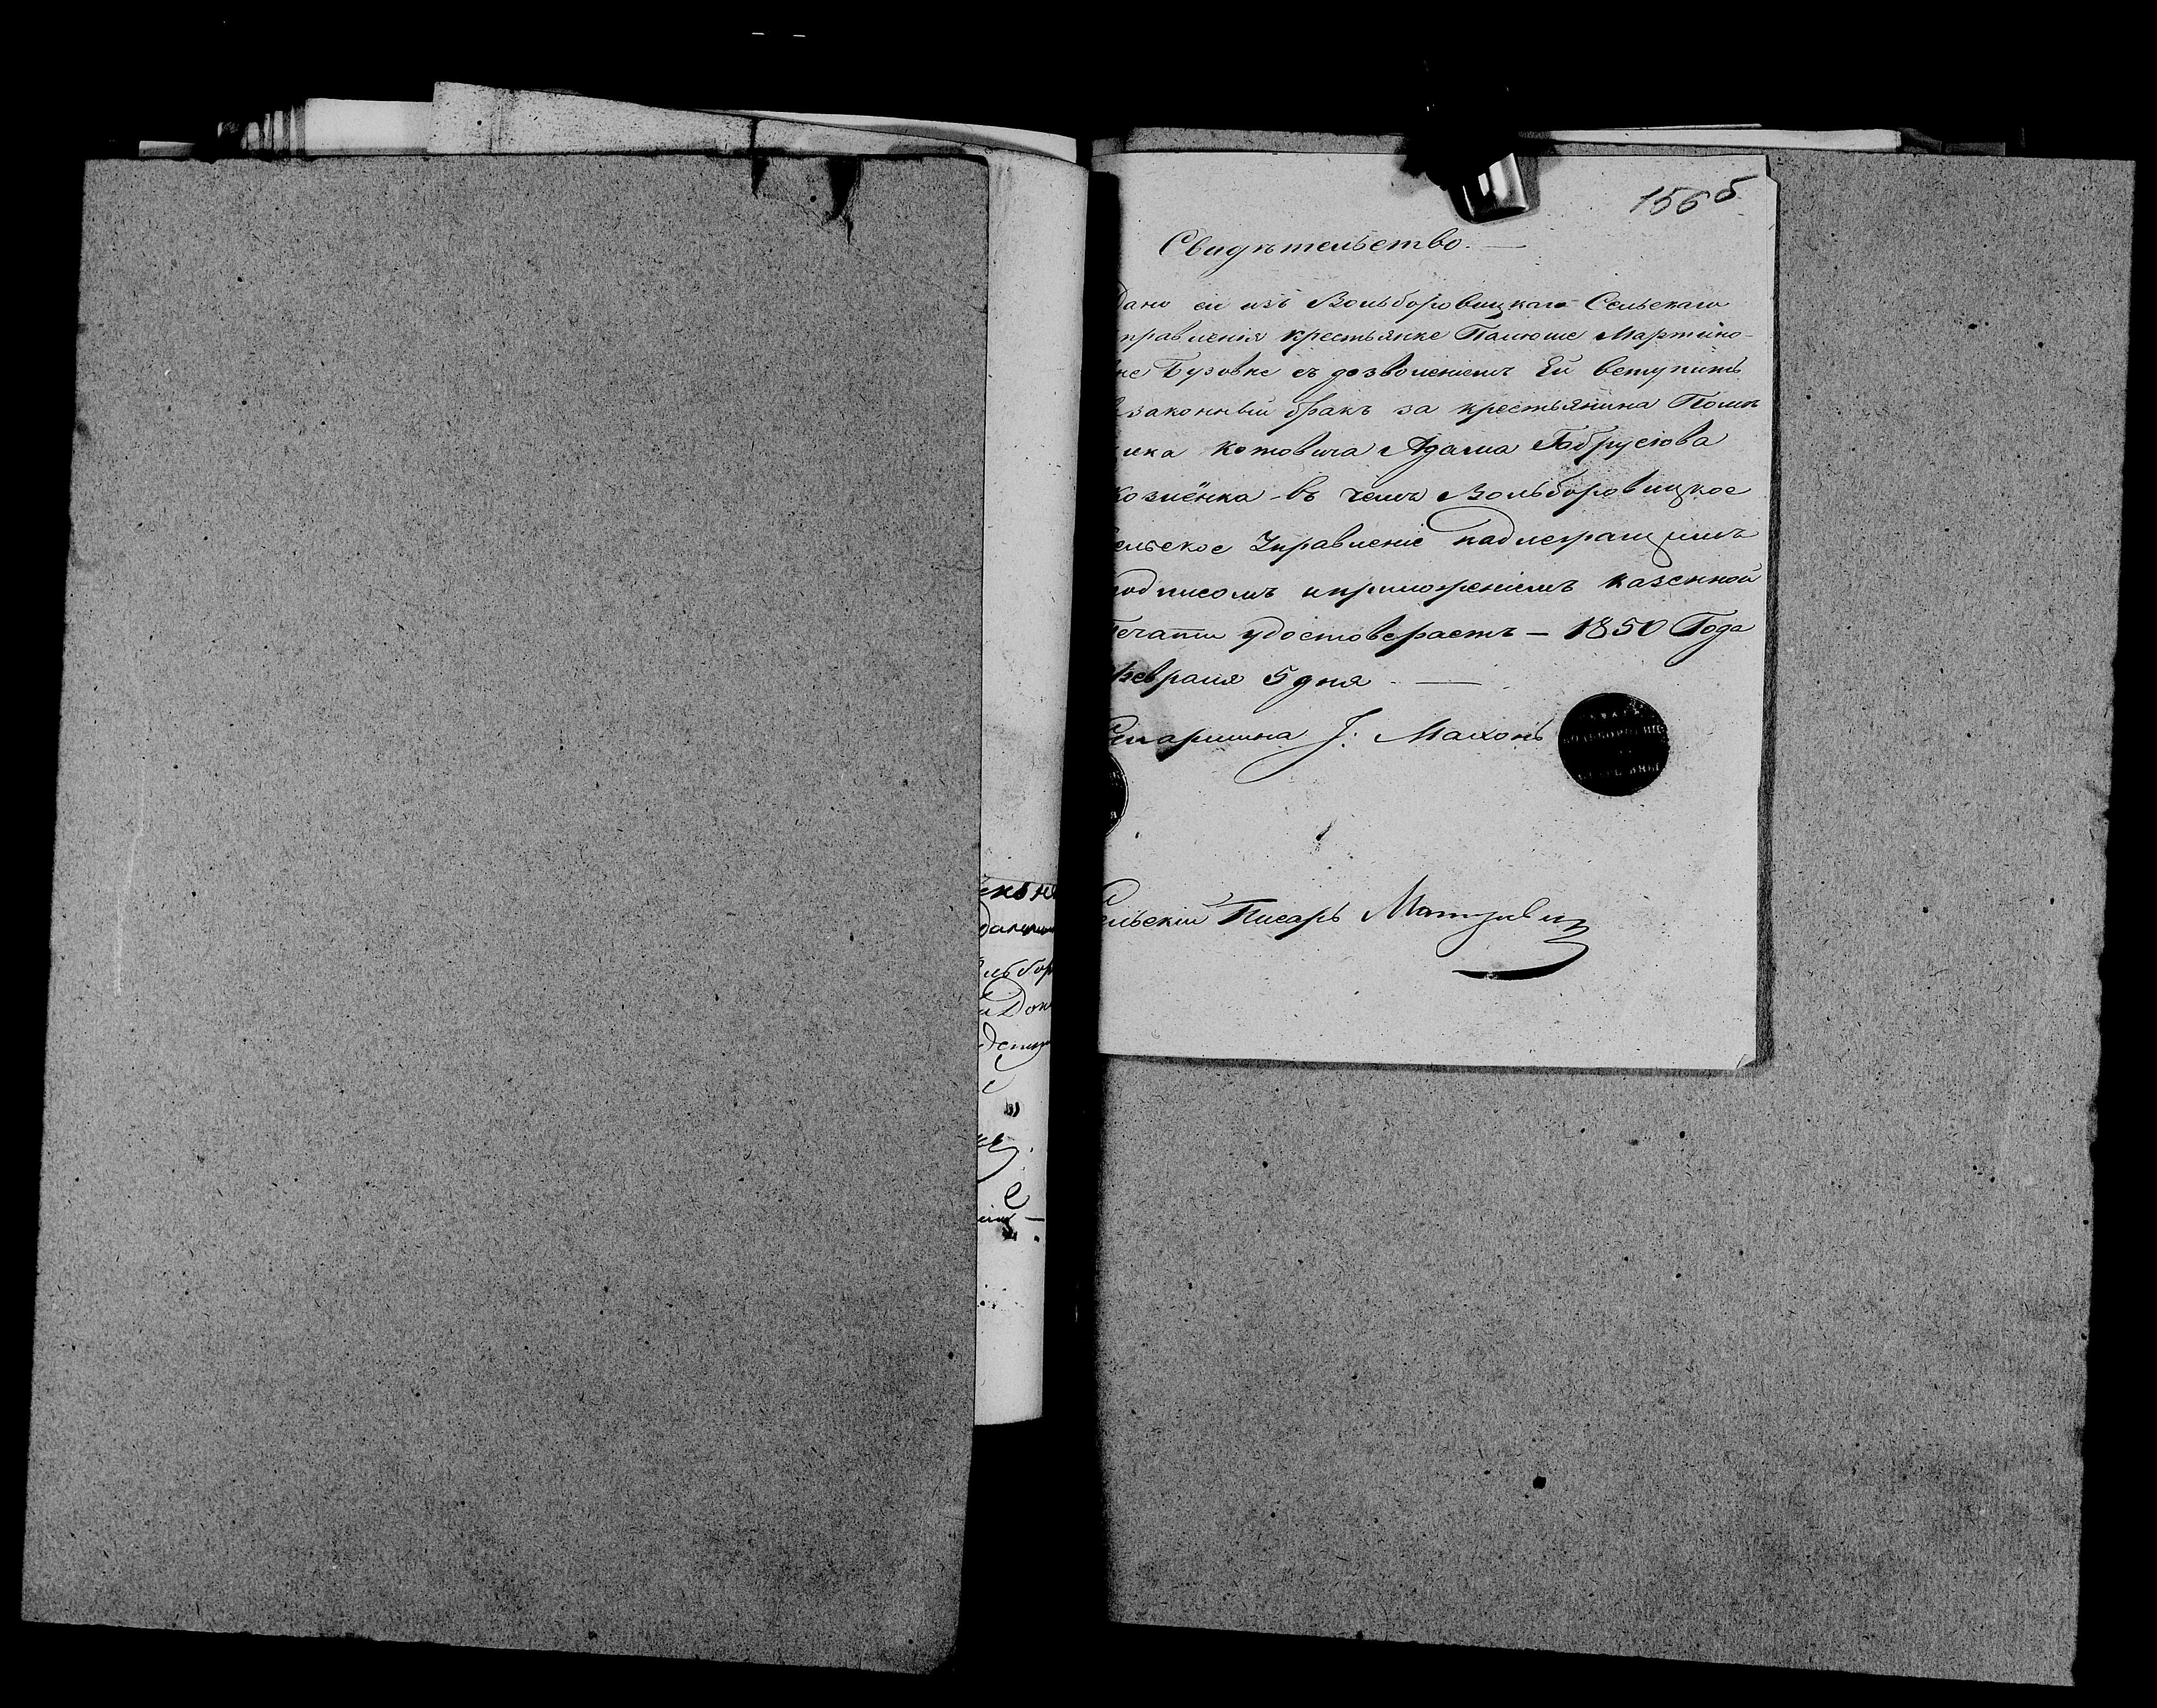 156б
Свидѣтельство. —
Дано ей изъ Вольборовицкаго Сельскаго
правленія крестьянке Палюше Мартино-
не Бузовне съ дозволеніемъ Ей вступить
законный бракъ за крестьянина Помѣ
ика Котовича Адама Габрусіова
Козлёнка – въ чемъ Вольборовицкое
ельское Управленіе надлежащимъ
одписомъ и приложеніемъ казенной
ечати удостоверяетъ – 1850 Года
Февраля 5 дня —
Старшина J: Махонь
ельскій Писарь